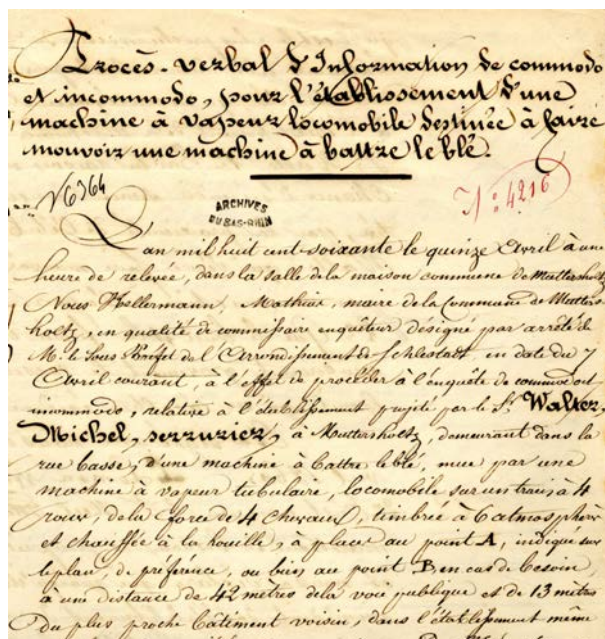 Procès-verbal d'Information de commodo
et incommodo, pour l'établissement d'une
machine à vapeur locomobile destinée à faire
mouvoir une machine à battre le blé.
N 6364
ARCHIVES
DU BAS-RHIN
N: 4216
L'an mil huit cent soixante le quinze Avril à une
heure de relevée, dans la salle de la maison commune de Muttersholtz
Nous Kellermann, Mathieu, maire de la Commune de Mutters
holtz, en qualité de commissaire enquêteur désigné par arrêté de
M. le Sous Préfet de l'Arrondissement de Schlestadt, en date du 7
Avril courant, à l'effet de procéder à l'enquête de commodo et
incommodo, relative à l'établissement projeté par le Sr. Walter,
Michel, serrurier, à Muttersholtz, demeurant dans la
rue basse, d'une machine à battre le blé, mue par une
machine à vapeur tubulaire, locomobile sur un train à 4
roues, de la force de 4 chevaux, timbrée à 6 atmosphères
et chauffée à la houille, à placer au point A, indiqué sur
le plan, de préférence, ou bien au point B en cas de besoin,
à une distance de 42 mètres de la voie publique et de 13 mètres
du plus proche bâtiment voisin, dans l'établissement même